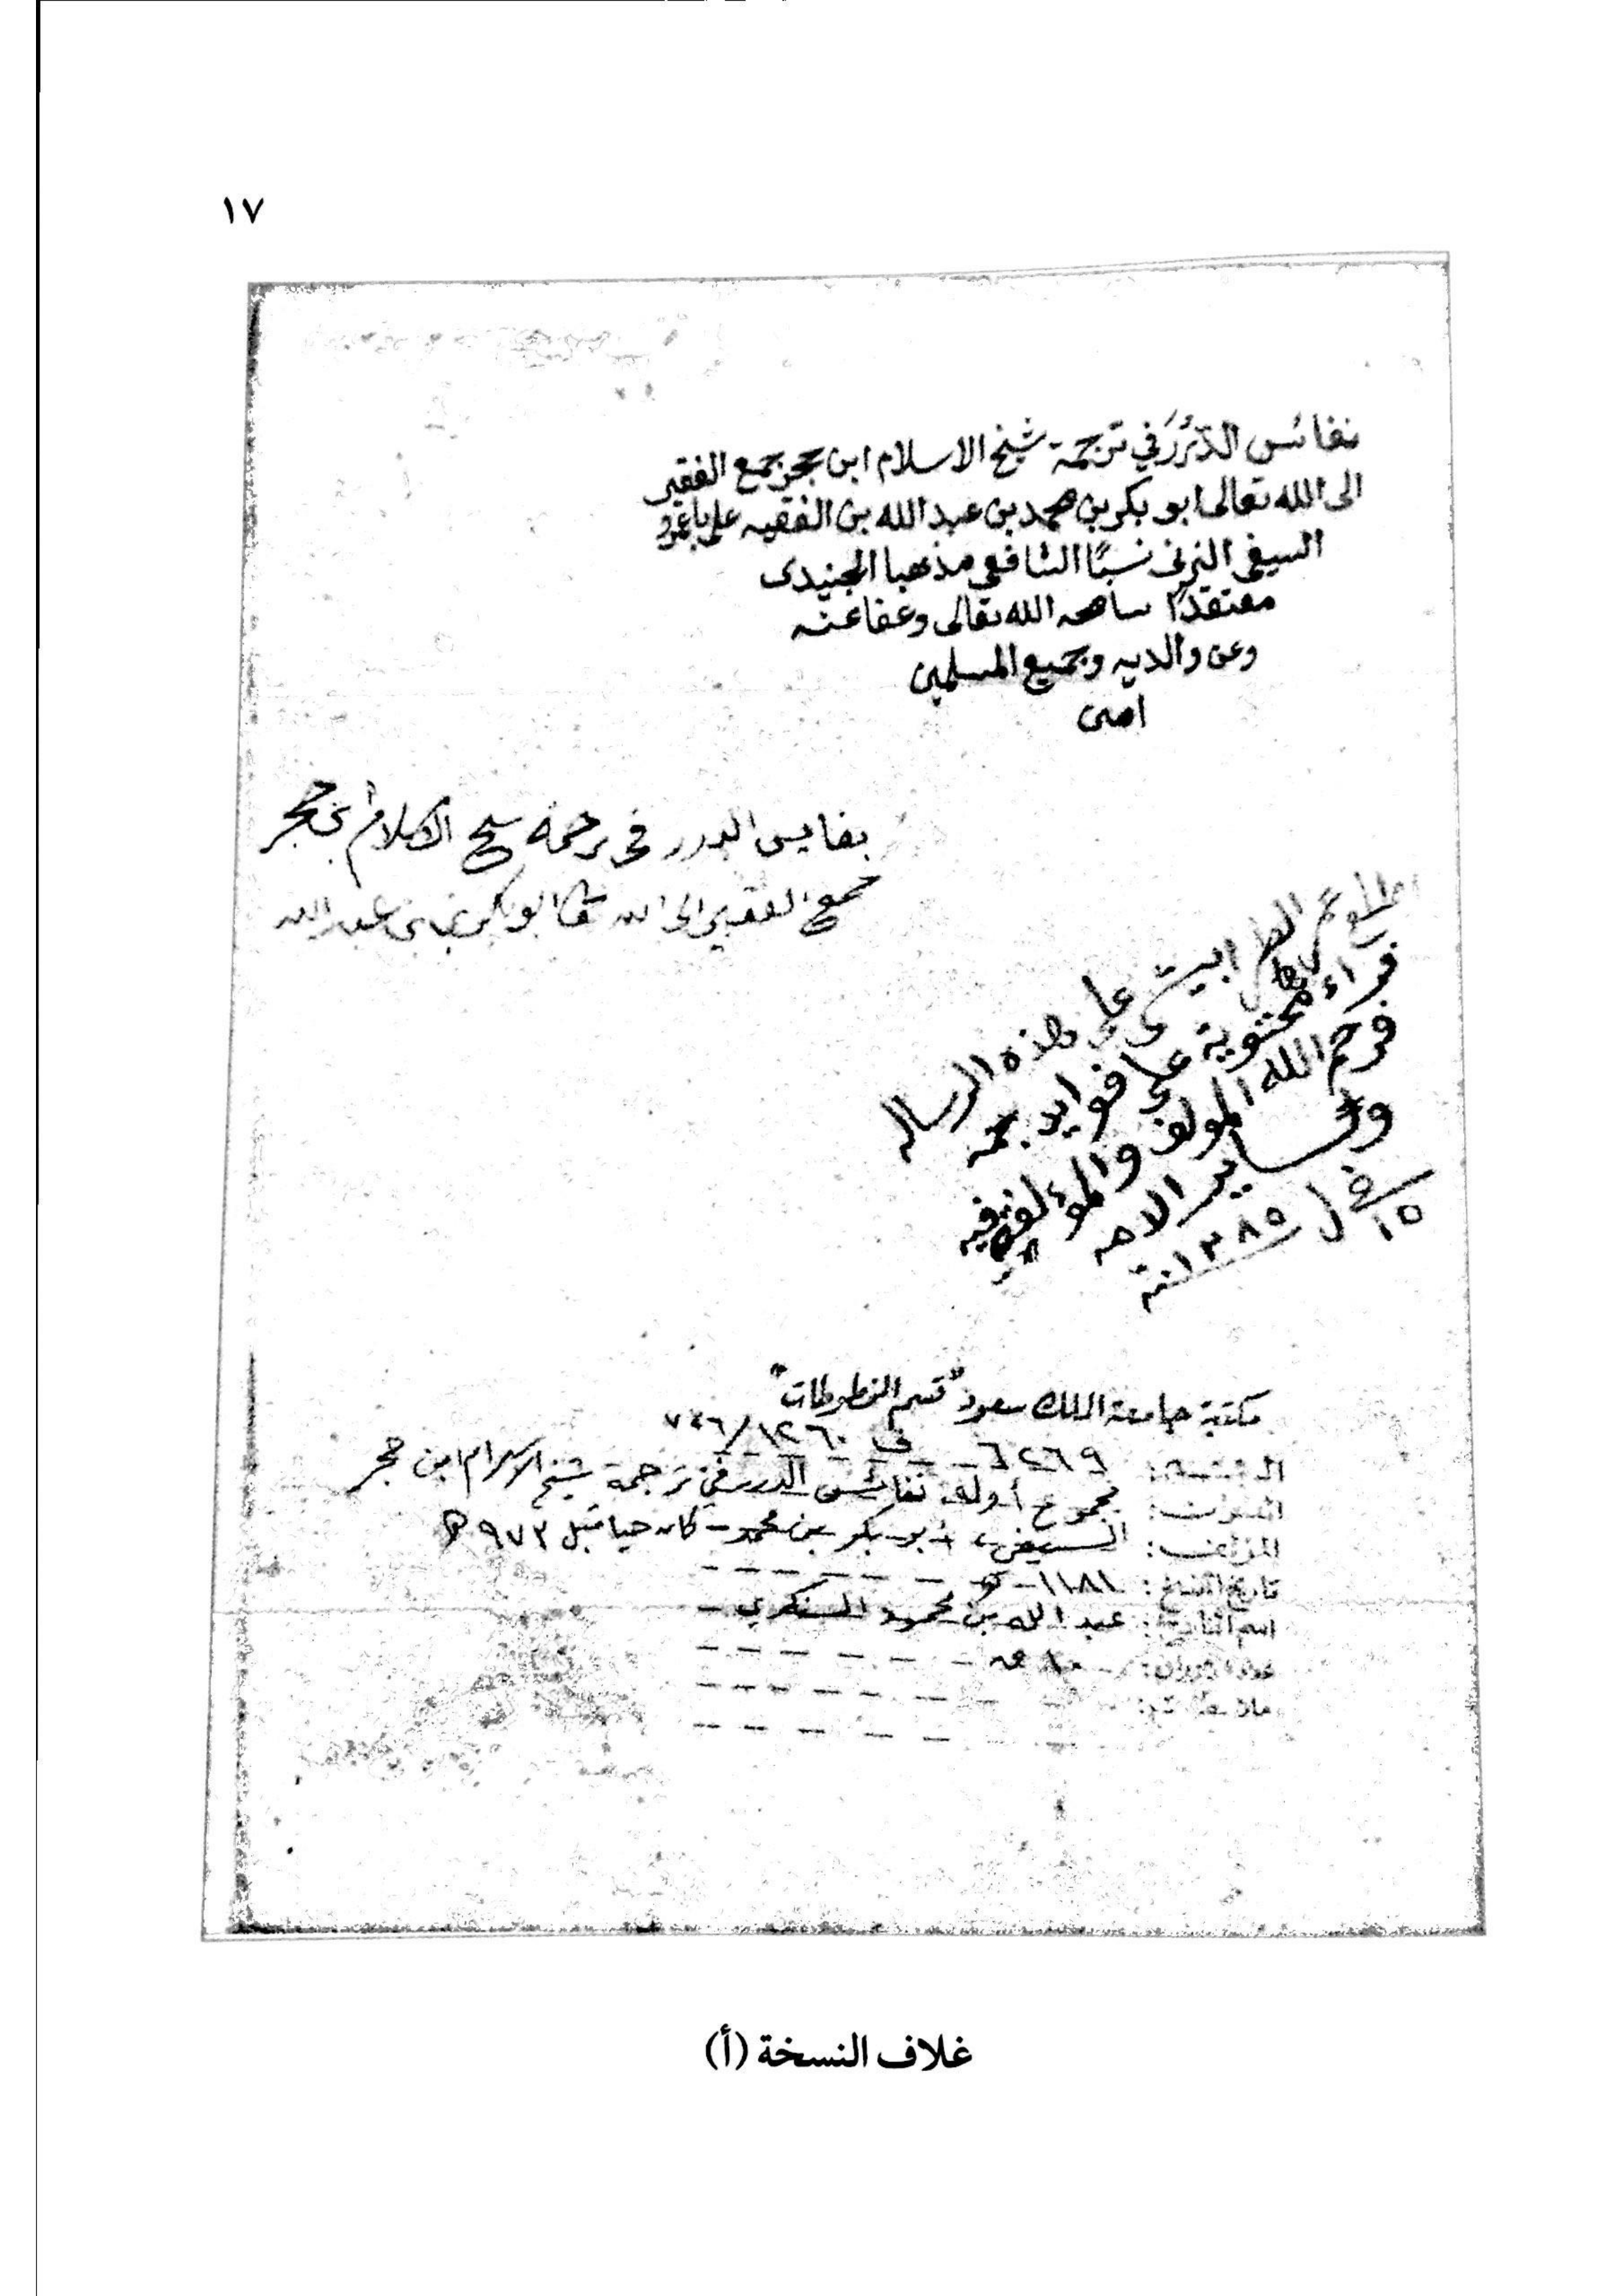 ١٧
نفائس الدُّرَرْ في ترجمة شيخ الاسلام ابن حجر جمع الفقير
الى الله تعالى ابو بكر بن محمد بن عبد الله بن الفقيه علي باعمرو
السيفي اليزني نسبًا الشافعي مذهبا الجنيدي
معتقدًا سامحه الله تعالى وعفا عنه
وعن والديه وجميع المسلمين
امين
نفايس الدرر في ترجمة شيخ الاسلام بن حجر
جمع الفقير الى الله ابو بكر بن بن عبد الله
على هذه الرساله
محتوية على فوايد جمه
فرحم الله المولف والمؤلف فيه
وساير الامه
١٥
١٣٨٥ سنة
مكتبة جامعة الملك سعود "قسم المخطوطات"
الرقم: ٦٢٦٩ ١٢٦٠/٧٤٦
العنوان: مجموع أوله نفائس الدرر في ترجمة شيخ الاسلام ابن حجر
المؤلف: السيفي، أبو بكر بن محمد - كان حيا قبل ٩٧٣ هـ
تاريخ النسخ: ١١٨١ هـ
اسم الناسخ: عبد الله بن محمود
عدد الأوراق: ١٠
ملاحظات:
غلاف النسخة (أ)